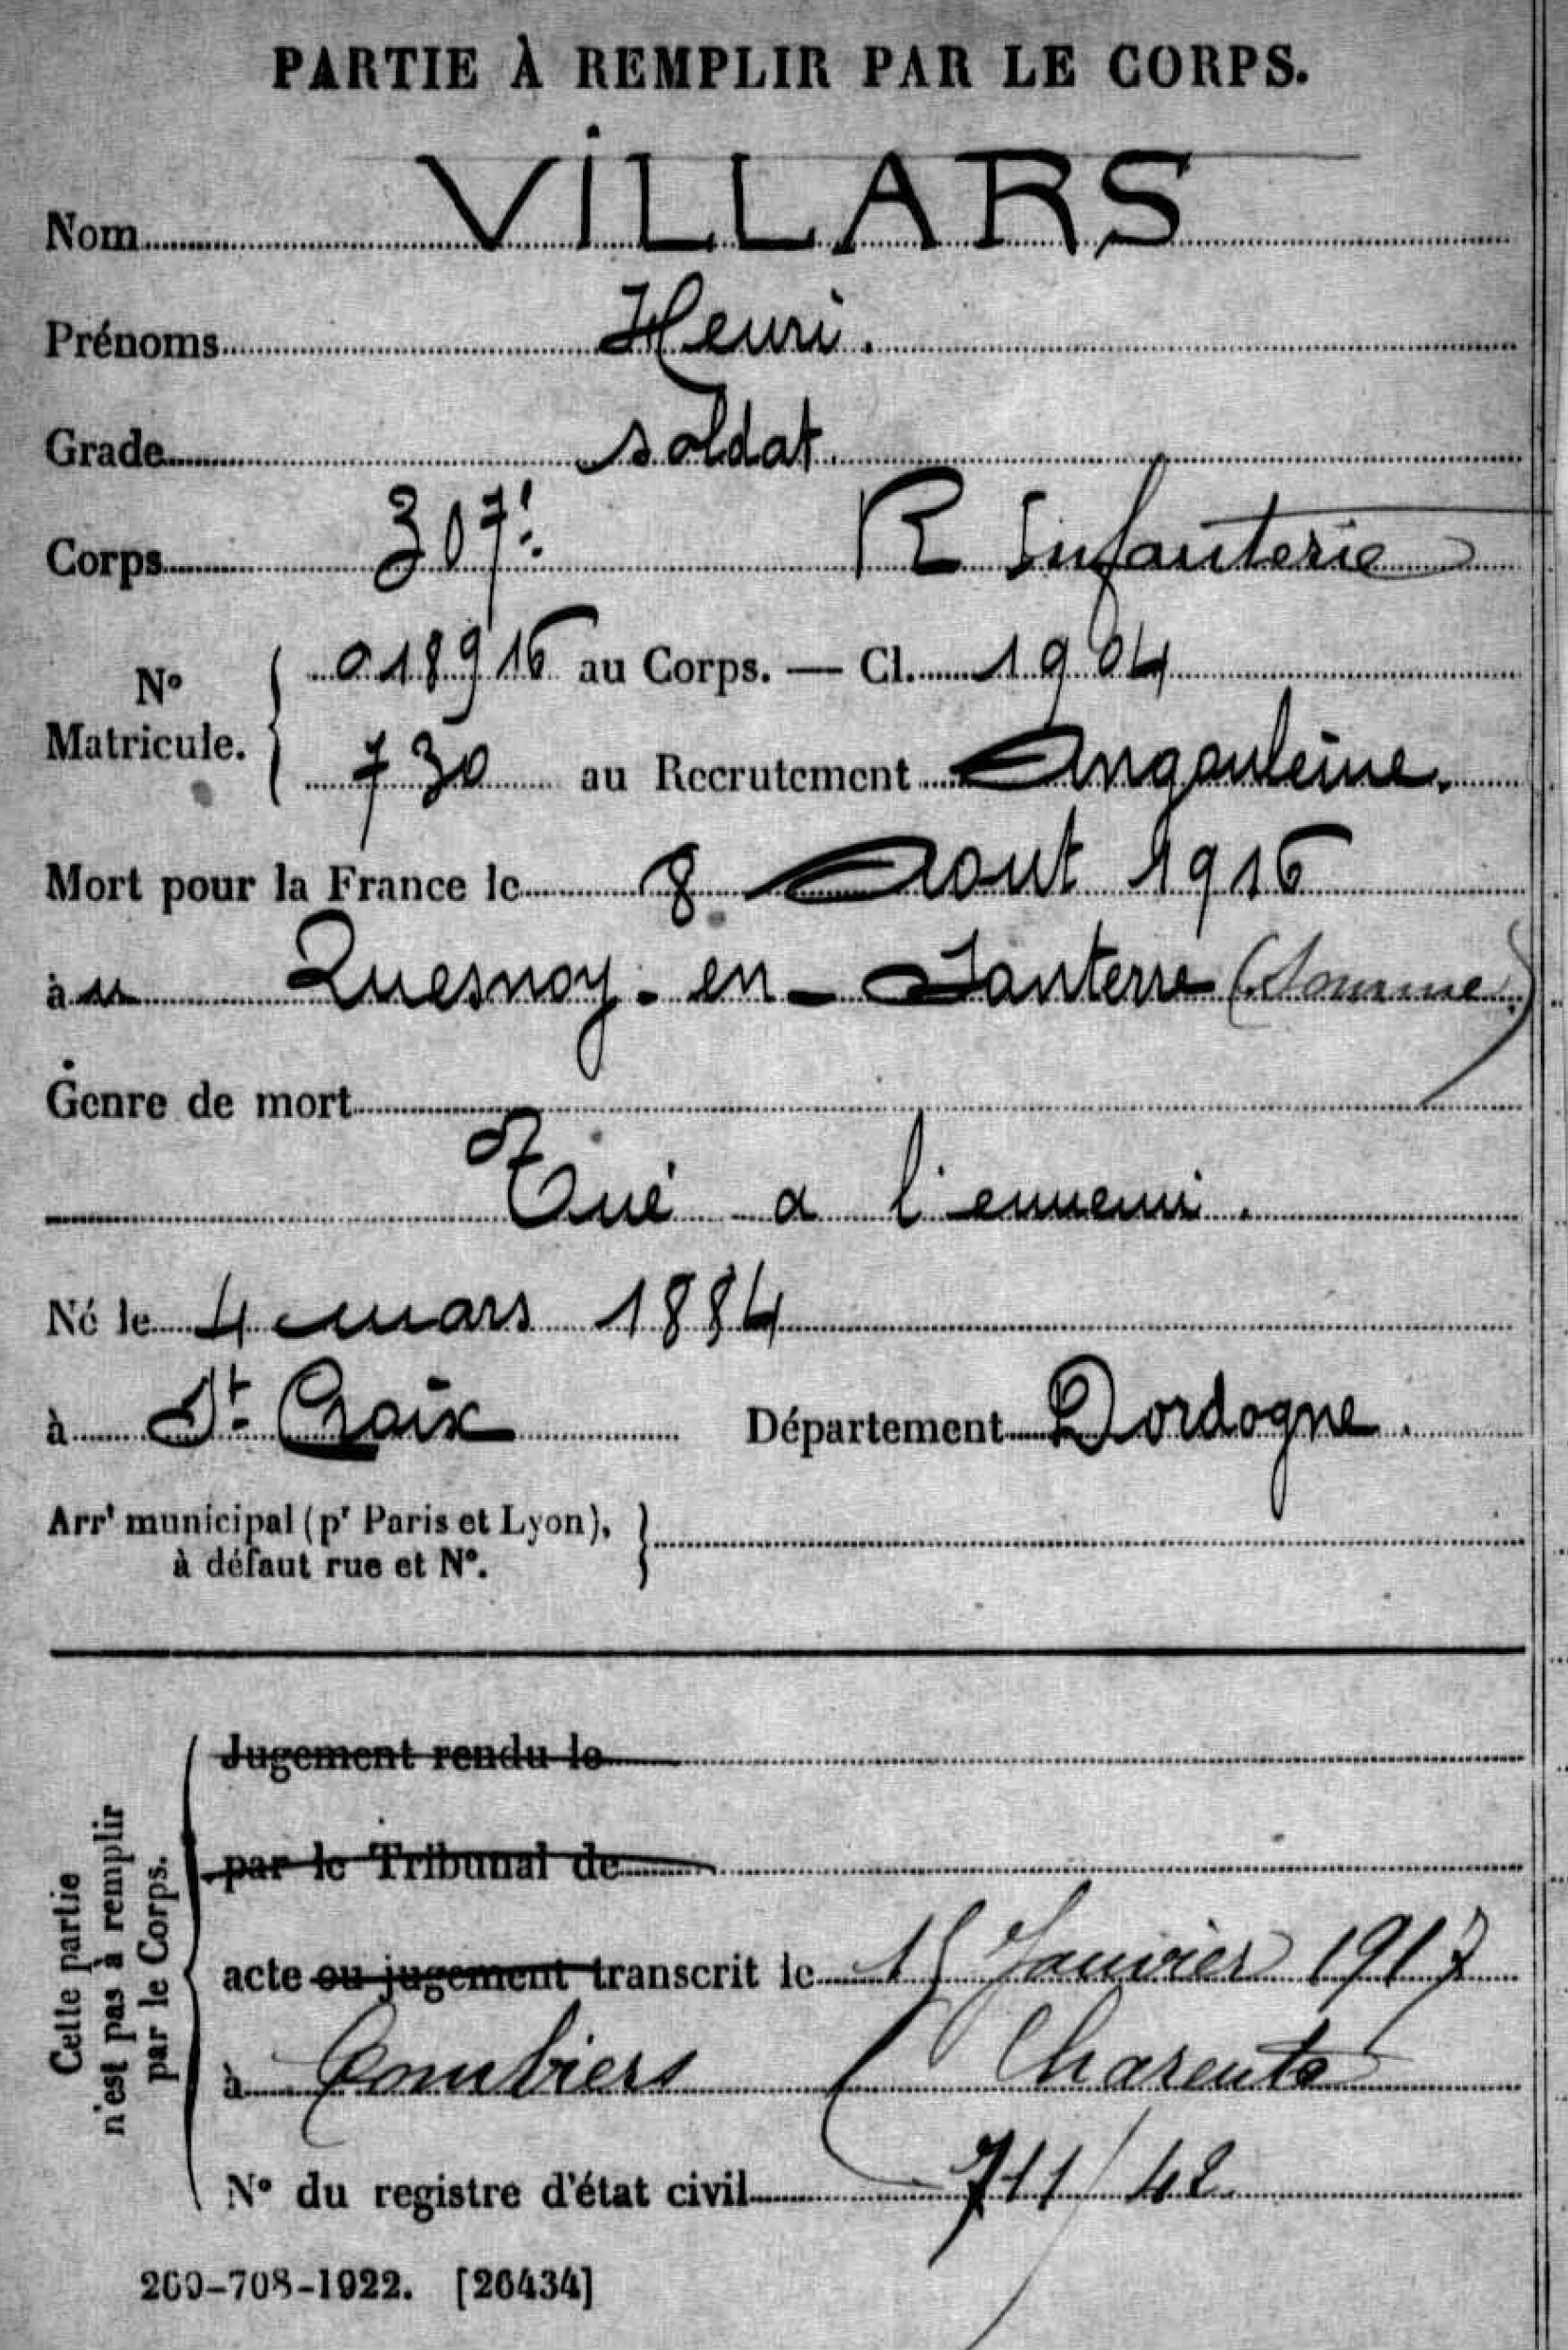 PARTIE À REMPLIR PAR LE CORPS.
Nom VILLARS
Prénoms Henri.
Grade soldat
Corps 307e R Infanterie
N° Matricule. 018916 au Corps. — Cl. 1904
730 au Recrutement Angoulême.
Mort pour la France le 8 Aout 1916
à Quesnoy-en-Santerre (Somme)
Genre de mort
Tué a l'ennemi.
Né le 4 mars 1884
à St Croix Département Dordogne.
Arrt municipal (pr Paris et Lyon),
à défaut rue et N°.
Cette partie
n'est pas à remplir
par le Corps.
Jugement rendu le
par le Tribunal de
acte ou jugement transcrit le 15 Janvier 1917
à Combiers Charente
N° du registre d'état civil 711/42
260-708-1922. [26434]